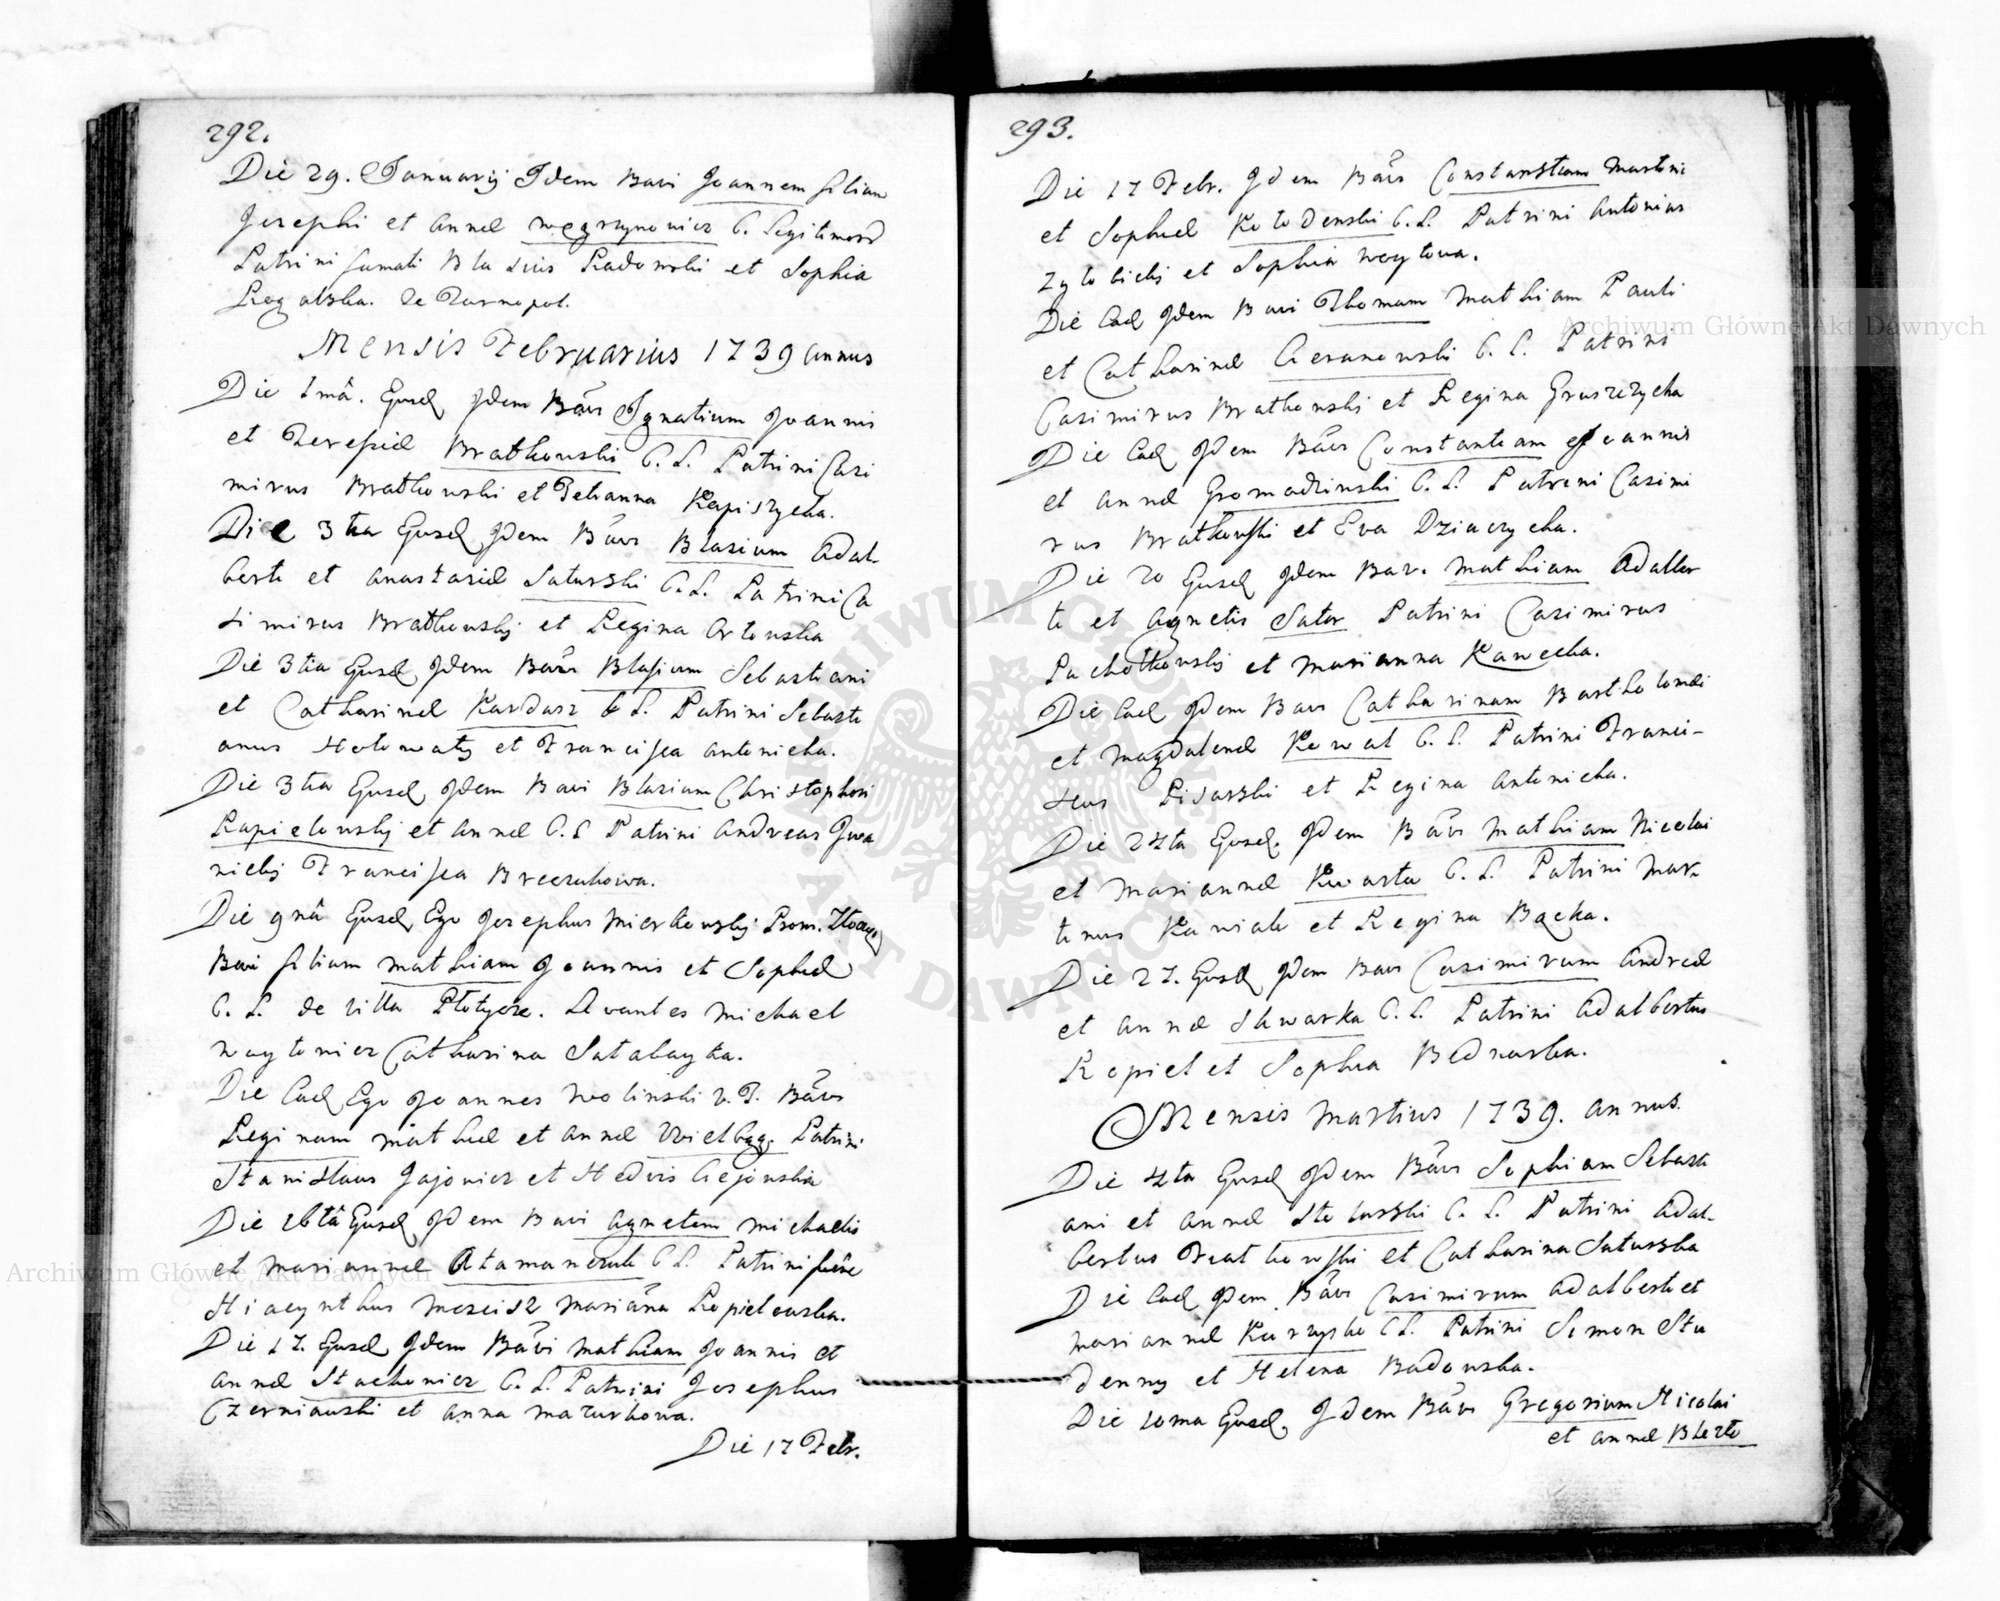 292.
Die 29. Januarij Idem Bavi Joannem filium
Josephi et Annæ Węgrzynowicz C. Legitimord
Patrini famati Blasius Radowski et Sophia
Rogalska. De Tarnopol.
Mensis Februarius 1739 Annus
Die 1mâ. Eiusd Idem Bãvi Ignatium Joannis
et Teresiæ Bratkowski C. L. Patrini Casi
mirus Bratkowski et Tetianna Kapiszycha.
Die 3tia Eiusd Idem Bãvi Blasium Adal-
berti et Anastasiæ Saturski C. L. Patrini Ca
simirus Bratkowskij et Regina Ortowska
Die 3tia Eiusd Idem Bãvi Blasium Sebastiani
et Catharinæ Kardasz C L. Patrini Sebasti
anus Hołowaty et Francisca Antonicha.
Die 3tia Eiusd Idem Bavi Blasium Christophori
Kapielowskij et Annæ C. L Patrini Andreas Iwa
nickij Francisca Brzezuhowa.
Die 9nâ Eiusd Ego Josephus Mierkowskij Prom.
Bavi filium Mathiam Joannis et Sophiæ
C. L. de villa Płotycze. Levantes Michael
Woytowicz Catharina Satabayka.
Die Ead Ego Joannes Wolinski v. P. Bãvi
Reginam Mathiæ et Annæ Patrini
Stanislaus Jajowicz et Hedvis
Die 16tâ Eiusd Idem Bavi Agnetem Michaelis
et Mariannæ Atamanczuk C L. Patrini fuêre
Hiacynthus Marìãna Kopielowska.
Die 17. Eiusd Idem Bãvi Mathiam Joannis et
Annæ Stachowicz C. L. Patrini Josephus
Czerniawski et Anna Mazurkowa.
Die 17 Febr.
293.
Die 17 Febr. Idem Bãvi Constantiam Martini
et Sophiæ Kołodenski C. L. Patrini Antonius
Zytobickj et Sophia Woytowa.
Die Ead Idem Bavi Thomam Mathiam Pauli
et Catharinæ C. L. Patrini
Casimirus Bratkowski et Regina Gruszczycha
Die Ead Idem Bãvi Constantiam Joannis
et Annæ Gromadzinski C. L. Patrini Casimi
rus Bratkowski et Eva Dziaczycha.
Die 20 Eiusd Idem Bav. Mathiam Adalber
ti et Agnetis Sator Patrini Casimirus
Pachołkowskij et Marianna Kawecka.
Die Ead Idem Bavi Catharinam Bartholomæi
et Magdalenæ Kowal C. L. Patrini Franci-
scus Pisarski et Regina Antonicha.
Die 24ta Eiusd. Idem Bãvi Mathiam Nicolai
et Mariannæ Kwarta C. L. Patrini Mar-
tinus Kawiak et Regina Bącka.
Die 27. Eiusd Idem Bavi Casimirum Andreæ
et Annæ Skwarka C. L. Patrini Adalbertus
Kopiel et Sophia Bednarka.
Mensis Martius 1739. Annus.
Die 4ta Eiusd Idem Bãvi Sophiam Sebasti
ani et Annæ Stolarski C. L. Patrini Adal-
bertus et Catharina Saturska
Die Ead Idem Bãvi Casimirum Adalberti et
Mariannæ C L. Patrini Simon Stu
denny et Helena Badowska.
Die 10ma Eiusd Idem Bãvi Gregorium Nicolai
et Annæ
Archiwum Główne Akt Dawnych
Archiwum Główne Akt Dawnych
ARCHIWUM GŁÓWNE
AKT DAWNYCH